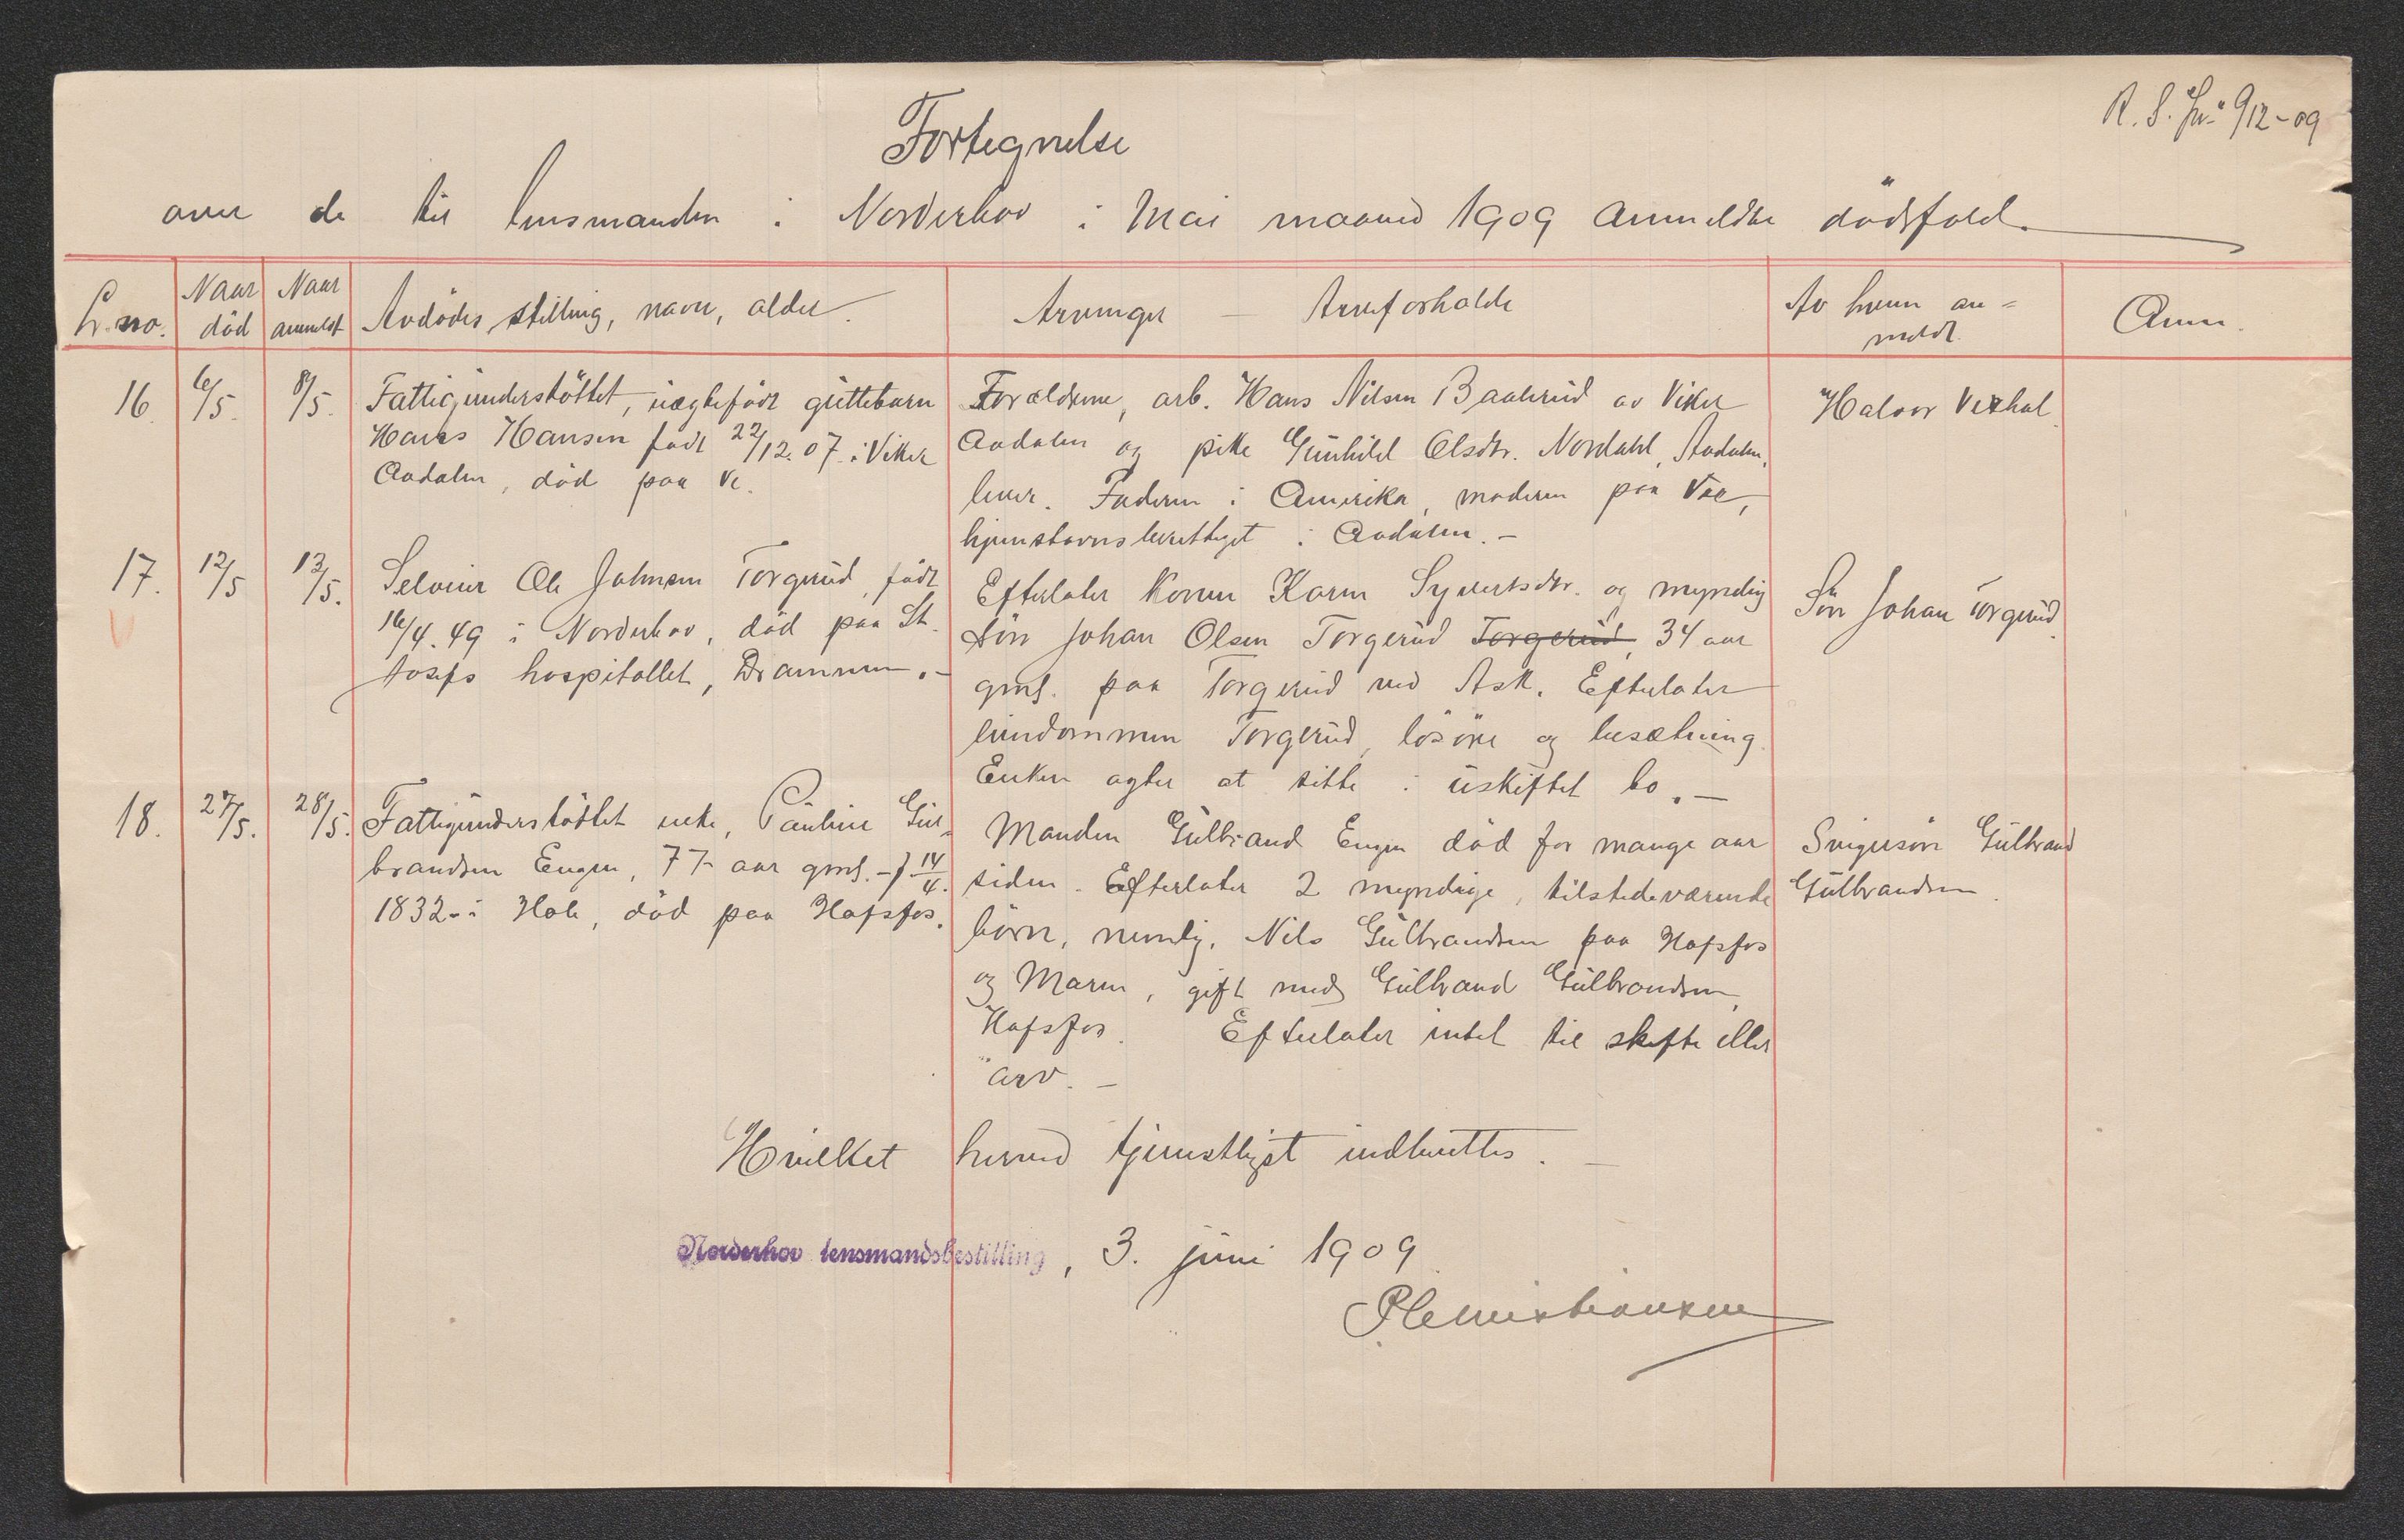 R. S. Jr. 912-09
Fortegnelse
over de til lensmanden i Norderhov i Mai maaned 1909 anmeldte dödsfald.
L.no. Naar död Naar anmeldt Avdödes stilling, navn, alder. Arvinger — Arveforholde Av hvem an= meldt. Anm.
16 6/5. 8/5. Fattigunderstöttet, uegtefödt guttebarn
Hans Hansen födt 22/12.07. i Viker
Aadalen, död paa Ve.
Forældrene, arb. Hans Nilsen Baakerud av Viker
Aadalen og pike Gunhild Olsdtr. Nordahl, Aadalen,
lever. Faderen i Amerika, moderen paa Vee,
hjemstavnsberettiget i Aadalen. —
Halvor Vexhal.
17. 12/5 13/5. Selveier Ole Johnsen Torgerud, födt
16/4.49 i Norderhov, död paa St.
Josefs hospitallet, Drammen. —
Efterlater Konen Karen Syvertsdtr. og myndig
Sön Johan Olsen Torgerud Torgerud, 34 aar
gml. paa Torgerud ved Ask. Efterlater
eiendommen Torgerud, lösöre og besætning.
Enken agter at sitte i uskiftet bo. —
Sön Johan Torgerud.
18. 27/5. 28/5. Fattigunderstöttet enke, Pauline Gul-
brandsen Engen, 77 aar gml. – f. 14/4.
1832 – i Hole, död paa Hofsfos.
Manden Gulbrand Engen död for mange aar
siden. Efterlater 2 myndige, tilstedeværende
börn, nemlig, Nils Gulbrandsen paa Hofsfos
og Maren, gift med Gulbrand Gulbrandsen,
Hofsfos. Efterlater intet til skifte eller
arv. —
Svigersön Gulbrand
Gulbrandsen.
Hvilket herved tjenstligst indberettes. —
Norderhov lensmandsbestilling, 3. juni 1909
P. Christiansen